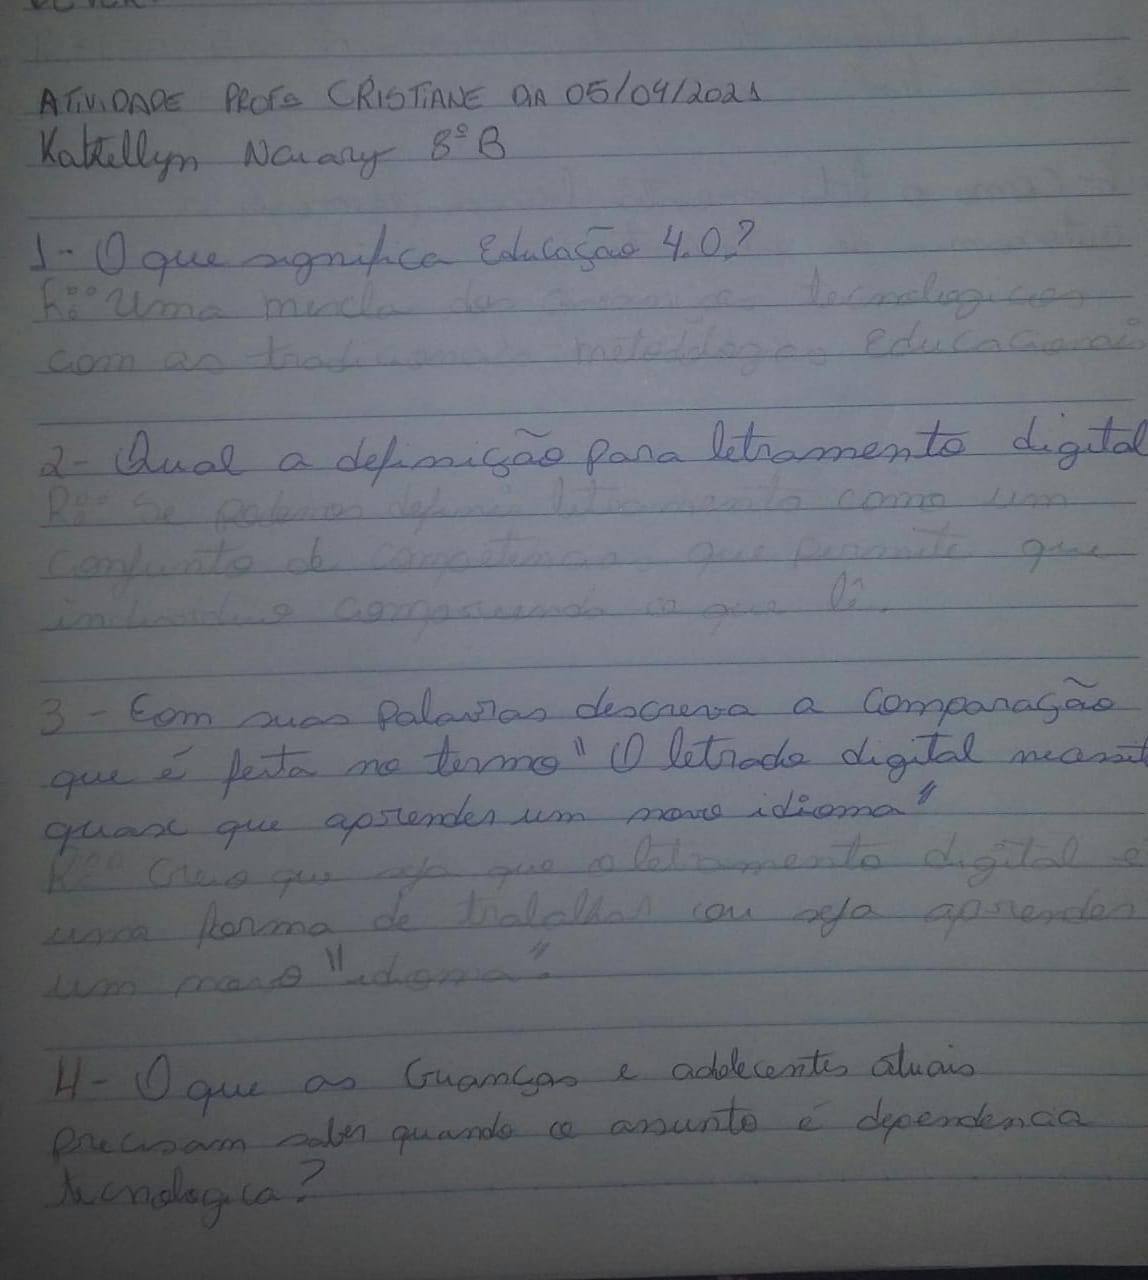 ATIVIDADE PROFª CRISTIANE DIA 05/04/2021
Katkellyn Nauany 8º B
1- O que significa Educação 4.0?
R: Uma mescla das tecnologicas
com as metodologas Educacionais
2- Qual a definição para letramento digital
R: Se podemos definir letramento como um
conjunto de competencias que permite que
individuo compreenda o que lê.
3- Com suas palavras descreva a comparação
que é feita no termo "O letrado digital necessit
quase que aprender um novo idioma"
R: Creio que seja que o letramento digital é
uma forma de trabalhar ou seja aprender
um novo "idioma".
4- O que as Crianças e adolecentes atuais
precisam saber quando o assunto é dependencia
tecnologica?